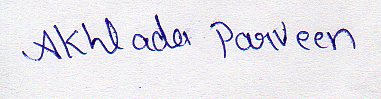 Akhlada Parveen